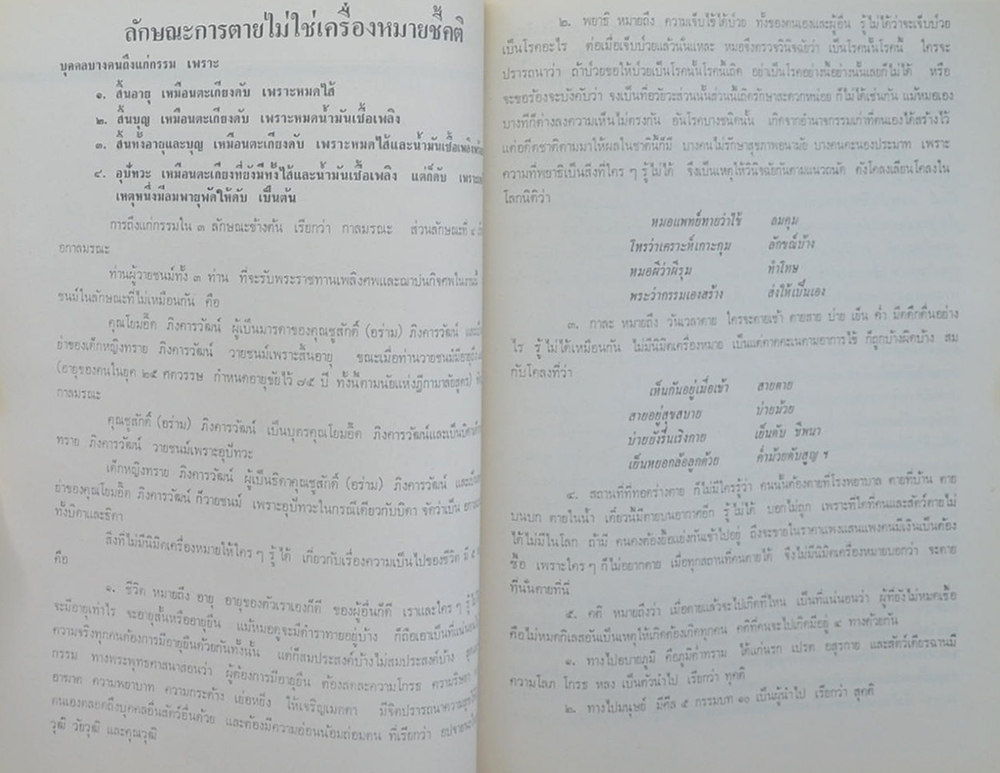 ลักษณะการตายไม่ใช่เครื่องหมายชี้คติ
บุคคลบางคนถึงแก่กรรม เพราะ
๑. สิ้นอายุ เหมือนตะเกียงดับ เพราะหมดไส้
๒. สิ้นบุญ เหมือนตะเกียงดับ เพราะหมดน้ำมันเชื้อเพลิง
๓. สิ้นทั้งอายุและบุญ เหมือนตะเกียงดับ เพราะหมดไส้และน้ำมันเชื้อเพลิง
๔. อุปัทวะ เหมือนตะเกียงที่ยังมีทั้งไส้และน้ำมันเชื้อเพลิง แต่ก็ดับ
เหตุหนึ่งมีลมพายุพัดให้ดับ เป็นต้น
การถึงแก่กรรมใน ๓ ลักษณะข้างต้น เรียกว่า กาลมรณะ ส่วนลักษณะที่ ๔
อกาลมรณะ
ท่านผู้วายชนม์ทั้ง ๓ ท่าน ที่จะรับพระราชทานเพลิงศพและฌาปนกิจศพในงานนี้
ชนม์ในลักษณะที่ไม่เหมือนกัน คือ
คุณโยมอี๊ด ภิงคารวัฒน์ ผู้เป็นมารดาของคุณชูศักดิ์ (อร่าม) ภิงคารวัฒน์
ย่าของเด็กหญิงทราย ภิงคารวัฒน์ วายชนม์เพราะสิ้นอายุ ขณะเมื่อท่านวายชนม์มีอายุถึง
(อายุของคนในยุค ๒๕ ศตวรรษ กำหนดอายุขัยไว้ ๗๕ ปี ทั้งนี้ตามนัยแห่งฎีกามาลัยสูตร)
กาลมรณะ
คุณชูศักดิ์ (อร่าม) ภิงคารวัฒน์ เป็นบุตรคุณโยมอี๊ด ภิงคารวัฒน์และเป็นบิดา
ทราย ภิงคารวัฒน์ วายชนม์เพราะอุปัทวะ
เด็กหญิงทราย ภิงคารวัฒน์ ผู้เป็นธิดาคุณชูศักดิ์ (อร่าม) ภิงคารวัฒน์
ย่าของคุณโยมอี๊ด ภิงคารวัฒน์ ก็วายชนม์ เพราะอุปัทวะในกรณีเดียวกับบิดา จัดว่าเป็น
ทั้งบิดาและธิดา
สิ่งที่ไม่มีนิมิตเครื่องหมายให้ใคร ๆ รู้ได้ เกี่ยวกับเรื่องความเป็นไปของชีวิต มี ๕
คือ
๑. ชีวิต หมายถึง อายุ อายุของตัวเราเองก็ดี ของผู้อื่นก็ดี เราและใคร ๆ
จะมีอายุเท่าไร จะอายุสั้นหรืออายุยืน แม้หมอดูจะมีตำราทายอยู่บ้าง ก็ถือเอาเป็นที่แน่นอน
ความจริงทุกคนต้องการมีอายุยืนด้วยกันทั้งนั้น แต่ก็สมประสงค์บ้างไม่สมประสงค์บ้าง
กรรม ทางพระพุทธศาสนาสอนว่า ผู้ต้องการมีอายุยืน ต้องลดละความโกรธ ความริษยา
อาฆาต ความพยาบาท ความกระด้าง เย่อหยิ่ง ให้เจริญเมตตา มีจิตปรารถนาความสุข
ตนเองตลอดถึงบุคคลอื่นสัตว์อื่นด้วย และต้องมีความอ่อนน้อมถ่อมตน ที่เรียกว่า
วุฒิ วัยวุฒิ และคุณวุฒิ
๒. พยาธิ หมายถึง ความเจ็บไข้ได้ป่วย ทั้งของตนเองและผู้อื่น รู้ไม่ได้ว่าจะเจ็บป่วย
เป็นโรคอะไร ต่อเมื่อเจ็บป่วยแล้วนั่นแหละ หมอจึงตรวจวินิจฉัยว่า เป็นโรคนั้นโรคนี้ ใครจะ
ปรารถนาว่า ถ้าป่วยขอให้ป่วยเป็นโรคนั้นโรคนี้เถิด อย่าเป็นโรคอย่างนี้อย่างนั้นเลยก็ไม่ได้ หรือ
จะขอร้องจะบังคับว่า จงเป็นที่อวัยวะส่วนนั้นส่วนนี้เถิดรักษาสะดวกหน่อย ก็ไม่ได้เช่นกัน แม้หมอเอง
บางทีก็ต่างลงความเห็นไม่ตรงกัน อันโรคบางชนิดนั้น เกิดจากอำนาจกรรมเก่าที่ตนเองได้สร้างไว้
แต่อดีตชาติตามมาให้ผลในชาตินี้ก็มี บางคนไม่รักษาสุขภาพอนามัย บางคนคะนองประมาท เพราะ
ความที่พยาธิเป็นสิ่งที่ใคร ๆ รู้ไม่ได้ จึงเป็นเหตุให้วินิจฉัยกันตามแนวถนัด ดังโคลงเลียนโคลงใน
โลกนิติว่า
หมอแพทย์ทายว่าไข้ ลมคุม
โหรว่าเคราะห์เกาะกุม ลักขณ์บ้าง
หมอผีว่าผีรุม ทำโทษ
พระว่ากรรมเองสร้าง ส่งให้เป็นเอง
๓. กาละ หมายถึง วันเวลาตาย ใครจะตายเช้า ตายสาย บ่าย เย็น ค่ำ มืดดึกดื่นอย่าง
ไร รู้ไม่ได้เหมือนกัน ไม่มีนิมิตเครื่องหมาย เป็นแต่คาดคะเนตามอาการไข้ ก็ถูกบ้างผิดบ้าง สม
กับโคลงที่ว่า
เห็นกันอยู่เมื่อเช้า สายตาย
สายอยู่สุขสบาย บ่ายม้วย
บ่ายยังรื่นเริงกาย เย็นดับ ชีพนา
เย็นหยอกล้อลูกด้วย ค่ำม้วยดับสูญ ฯ
๔. สถานที่ที่ทอดร่างตาย ก็ไม่มีใครรู้ว่า คนนั้นต้องตายที่โรงพยาบาล ตายที่บ้าน ตาย
บนบก ตายในน้ำ เดี๋ยวนี้มีตายบนอากาศอีก รู้ไม่ได้ บอกไม่ถูก เพราะที่ใดที่คนและสัตว์ตายไม่
ได้ไม่มีในโลก ถ้ามี คนคงต้องยื้อแย่งกันเข้าไปอยู่ ถึงจะขายในราคาแพงแสนแพงคนมีเงินเป็นต้อง
ซื้อ เพราะใคร ๆ ก็ไม่อยากตาย เมื่อทุกสถานที่คนตายได้ จึงไม่มีนิมิตเครื่องหมายบอกว่า จะตาย
ที่นั่นตายที่นี่
๕. คติ หมายถึงว่า เมื่อตายแล้วจะไปเกิดที่ไหน เป็นที่แน่นอนว่า ผู้ที่ยังไม่หมดเชื้อ
คือไม่หมดกิเลสอันเป็นเหตุให้เกิดต้องเกิดทุกคน คติที่คนจะไปเกิดมีอยู่ ๔ ทางด้วยกัน
๑. ทางไปอบายภูมิ คือภูมิต่ำทราม ได้แก่นรก เปรต อสุรกาย และสัตว์เดียรฉานมี
ความโลภ โกรธ หลง เป็นตัวนำไป เรียกว่า ทุคติ
๒. ทางไปมนุษย์ มีศีล ๕ กรรมบท ๑๐ เป็นผู้นำไป เรียกว่า สุคติ